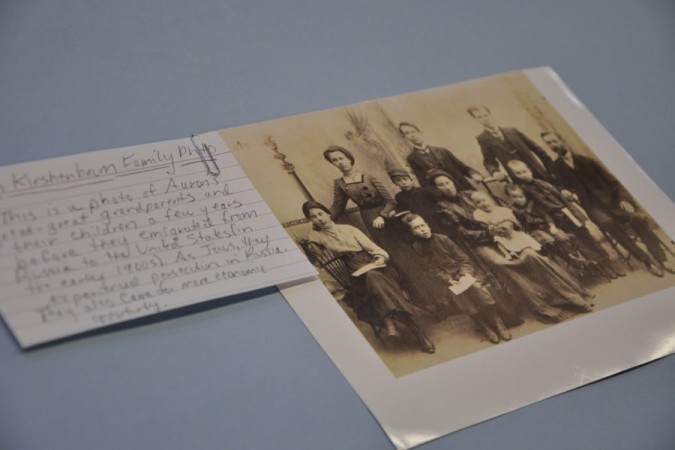 n Kirshenbaum Family Photo
This is a photo of Aaron's
great-grandparents and
their children a few years
before they emigrated from
Russia to the United States (in
the early 1900s). As Jews, they
experienced persecution in Russia.
They also came for more economic
opportunity.